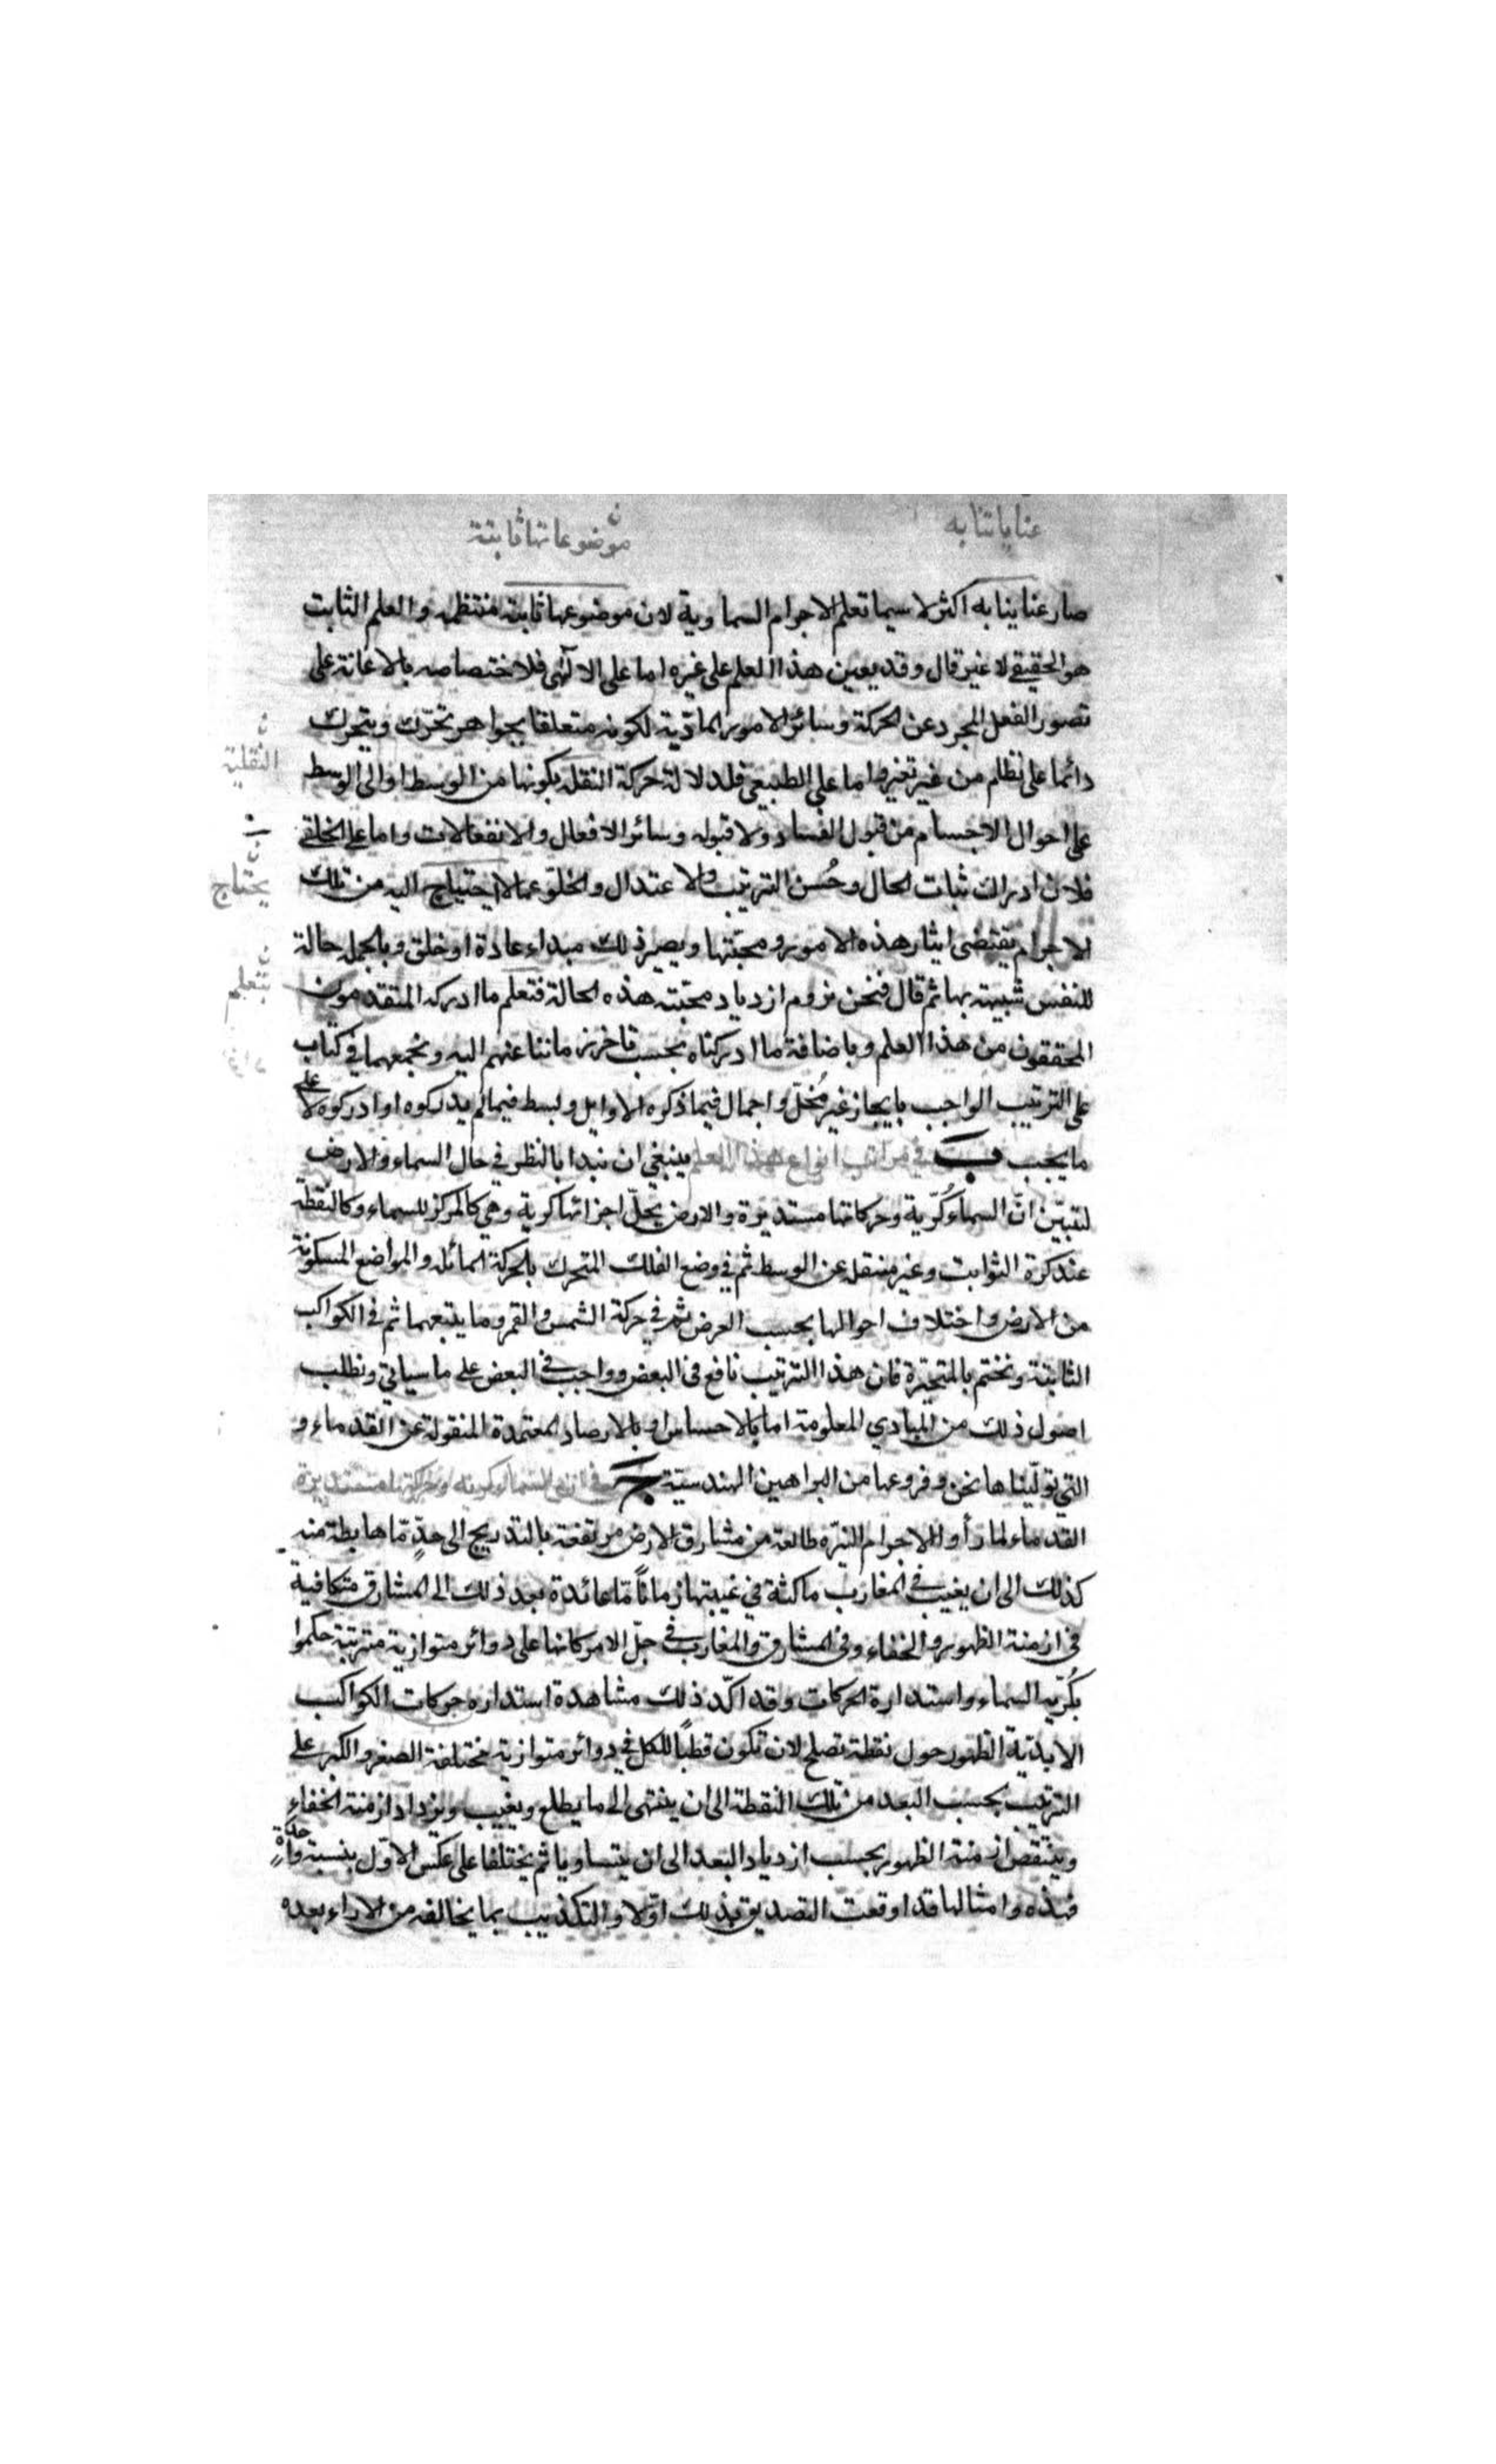 عناياتنا به
ن
موضوعاتها ثابتة
صار عنايتنا به اكثر لا سيما تعلم الاجرام السماوية لان موضوعها ثابتة منتظمه والعلم الثابت
هو الحقيقي لا غير قال وقد يعين هذا العلم على غيره اما على الالهى فلاختصاصه بالاعانة على
تصور الفعل المجرد عن الحركة وسائر الامور المادّية لكونه متعلقا بجواهر تحرّك ويتحرك
ن
النقلية
دائما على نظام من غير تغير واما على الطبيعي فلدلالة حركة النقله بكونها من الوسط او الى الوسط
على احوال الاجسام من قبول الفساد ولا قبوله وسائر الافعال والانفعالات واما على الخلقي
ن
يحتاج
فلان ادراك ثبات الحال وحُسن الترتيب والاعتدال والخلوّ عما لا يحتياج اليه من تلك
الاجرام يقتضى ايثار هذه الامور ومحبّتها ويصير ذلك مبداء عادة او خلق وبالجملة حالة
ن
بتعلم
للنفس شبيهة بها ثم قال فنحن نروم ازدياد محبّته هذه الحالة فتعلم ما ادركه المتقدمون
المحققون من هذا العلم وباضافة ما ادركناه بحسب تاخر زماننا عنهم اليه ونجمعهما في كتاب
على الترتيب الواجب بايجاز غير مُخلّ واجمال فيما ذكره الاوايل وبسط فيما لم يدركوه او ادركوه لا على
ما يجب ب في مراتب انواع هذا العلم ينبغي ان نبدا بالنظر في حال السماء والارض
لتبيّن انّ السماء كُرّية وحركاتها مستديرة والارض بجلّ اجزائها كرية وهي كالمركز للسماء وكالنقطة
عند كرة الثوابت وغير منتقل عن الوسط ثم في وضع الفلك المتحرك بالحركة المائلة والمواضع المسكونة
من الارض واختلاف احوالها بحسب العرض ثم في حركة الشمس والقمر وما يتبعهما ثم في الكواكب
الثابتة ونختم بالمتحيّرة فان هذا الترتيب نافع في البعض وواجب في البعض على ما سياتي ونطلب
اصول ذلك من المبادي المعلومة اما بالاحساس او بالارصاد المعتمدة المنقولة عن القدماء و
التي تولّيناها نحن وفروعها من البراهين الهندسيّة ج في ان السماء كرية وحركتها مستديرة
القدماء لما رأوا الاجرام النيّره طالعة من مشارق الارض مرتفعة بالتدريج الى حدٍّ مّا هابطة منه
كذلك الى ان يغيب في المغارب ماكثة في غيبتها زماناً مّا عائدة بعد ذلك الى المشارق متكافية
في ازمنة الظهور والخفاء وفي المشارق والمغارب في جلّ الامر كانها على دوائر متوازية مترتبة حكموا
بكُرّيه السماء واستدارة الحركات وقد اكّد ذلك مشاهدة استداره حركات الكواكب
الابديّة الظهور حول نقطة تصلح لان تكون قطباً للكل في دوائر متوازية مختلفة الصغر والكبر على
الترتيب بحسب البعد من تلك النقطة الى ان ينتهى الى ما يطلع ويغيب ويزداد ازمنة الخفاء
وينتقص ازمنة الظهور بحسب ازدياد البعد الى ان يتساويا ثم يختلفا على عكس الاوّل بنسبة واحدة
فهذه وامثالها قد اوقعت التصديق بذلك اوّلا والتكذيب بما يخالفه من الاراء بعده